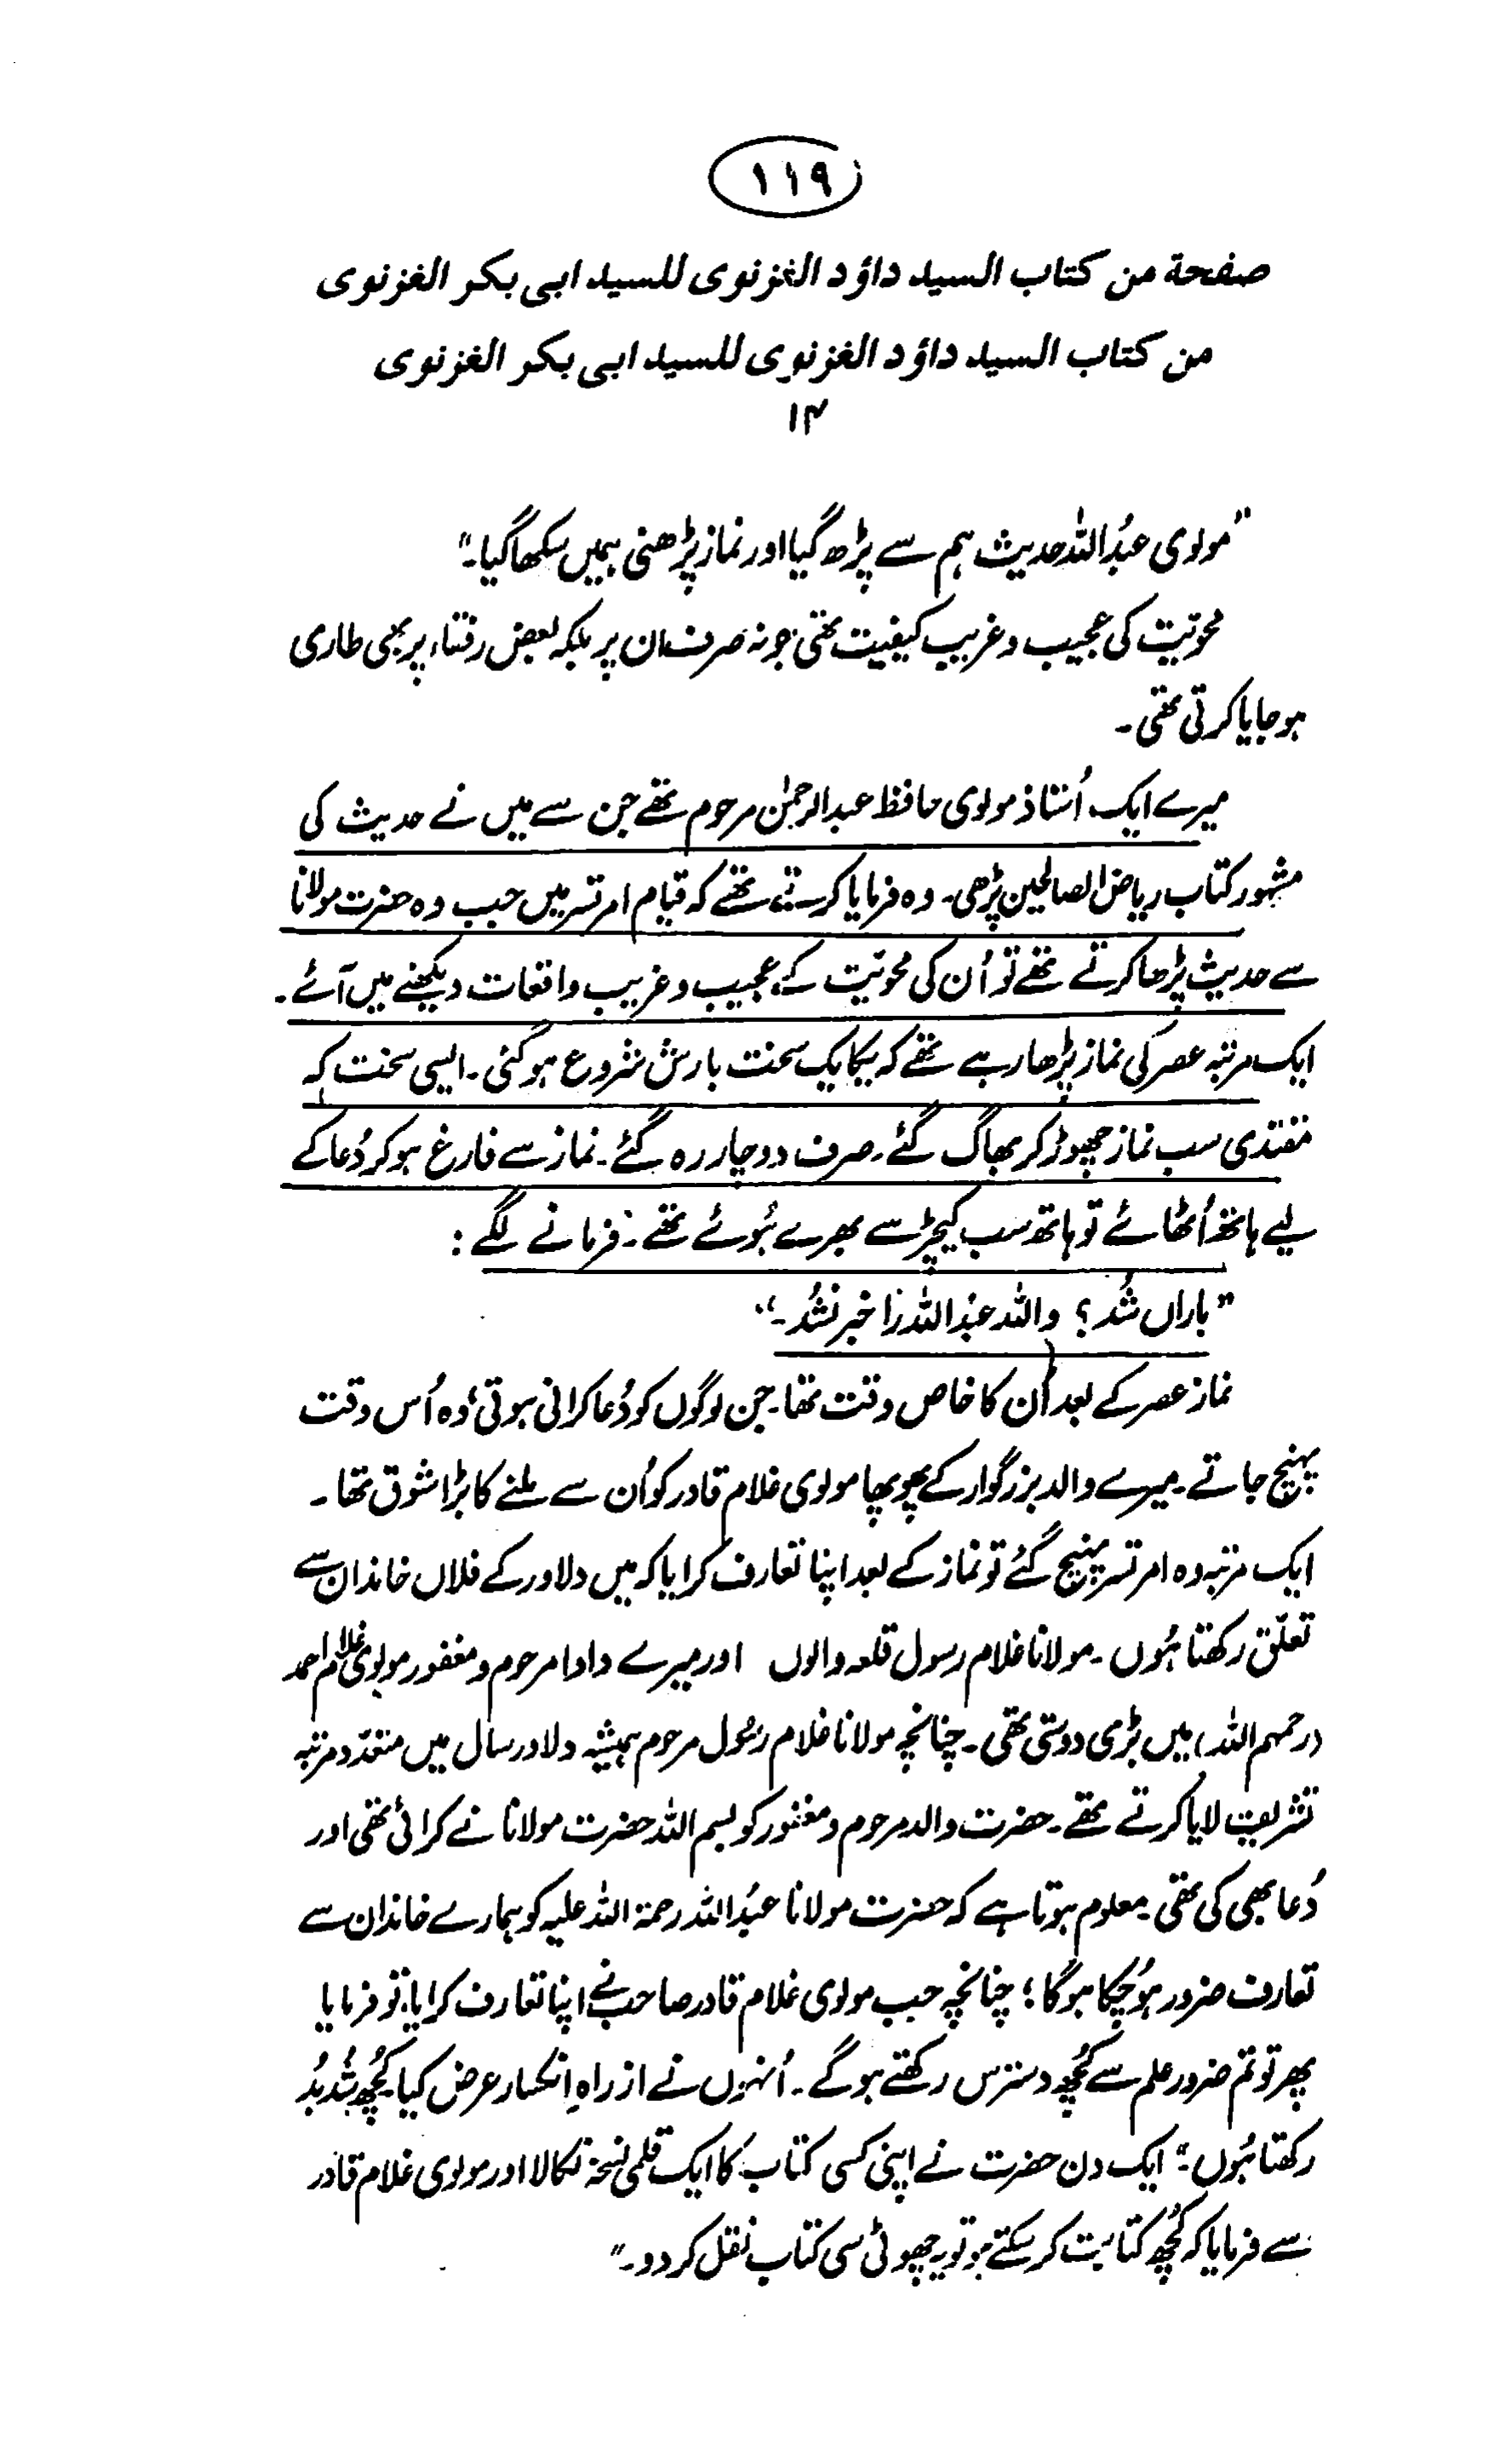 ١١٩
صفحة من كتاب السيد داؤد الغزنوى للسيد ابى بكر الغزنوى
من كتاب السيد داؤد الغزنوى للسيد ابى بكر الغزنوى
۱۴
”مولوی عبدُاللہ حدیث ہم سے پڑھ گیا اور نماز پڑھنی ہمیں سکھا گیا۔“
محویّت کی عجیب و غریب کیفیت تھی جو نہ صرف اُن پر بلکہ بعض رفقاء پر بھی طاری
ہو جایا کرتی تھی۔
میرے ایک اُستاذ مولوی حافظ عبدالرحمٰن مرحوم تھے جن سے میں نے حدیث کی
مشہور کتاب ریاض الصالحین پڑھی۔ وہ فرمایا کرتے تھے کہ قیام امرتسر میں جب وہ حضرت مولانا
سے حدیث پڑھا کرتے تھے تو اُن کی محویّت کے عجیب و غریب واقعات دیکھنے میں آئے۔
ایک مرتبہ عصر کی نماز پڑھا رہے تھے کہ یکایک سخت بارش شروع ہو گئی۔ ایسی سخت کہ
مقتدی سب نماز چھوڑ کر بھاگ گئے۔ صرف دو چار رہ گئے۔ نماز سے فارغ ہو کر دُعا کے
لیے ہاتھ اُٹھائے تو ہاتھ سب کیچڑ سے بھرے ہُوئے تھے۔ فرمانے لگے:
”باراں شُد؟ واللہ عبدُاللہ را خبر نشُد۔“
نماز عصر کے بعد اُن کا خاص وقت تھا۔ جن لوگوں کو دُعا کرانی ہوتی، وہ اُس وقت
پہنچ جاتے۔ میرے والد بزرگوار کے پھوپھا مولوی غلام قادر کو اُن سے ملنے کا بڑا شوق تھا۔
ایک مرتبہ وہ امرتسر پہنچ گئے تو نماز کے بعد اپنا تعارف کرایا کہ میں دلاور کے فلاں خاندان سے
تعلّق رکھتا ہُوں۔ مولانا غلام رسول قلعہ والوں اور میرے دادا مرحوم و مغفور مولوی غلام احمد
(رحمہم اللہ) میں بڑی دوستی تھی۔ چنانچہ مولانا غلام رسُول مرحوم ہمیشہ دلاور سال میں متعدّد مرتبہ
تشریف لایا کرتے تھے۔ حضرت والد مرحوم و مغفور کو بسم اللہ حضرت مولانا نے کرائی تھی اور
دُعا بھی کی تھی۔ معلوم ہوتا ہے کہ حضرت مولانا عبدُاللہ رحمۃ اللہ علیہ کو ہمارے خاندان سے
تعارف ضرور ہو چُکا ہو گا؛ چنانچہ جب مولوی غلام قادر صاحب نے اپنا تعارف کرایا، تو فرمایا
پھر تو تم ضرور علم سے کُچھ دسترس رکھتے ہو گے۔ اُنہوں نے از راہِ انکسار عرض کیا کُچھ شُد بُد
رکھتا ہُوں؛ ایک دن حضرت نے اپنی کسی کتاب کا ایک قلمی نسخہ نکالا اور مولوی غلام قادر
سے فرمایا کہ کُچھ کتابت کر سکتے ہو تو یہ چھوٹی سی کتاب نقل کر دو۔“